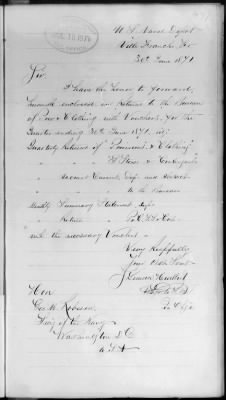 U. S. Naval Depot
Villa Franca,
30th June 1871
Sir,
I have the honor to forward,
herewith enclosed our Returns to the Bureau
of Prov & Clothing with Vouchers, for the
Quarter ending 30th June 1871, viz:
Quarterly Returns of "Provisions" & "Clothing"
" " " Stores & Contingent
" Account Current,
to the Bureau
Monthly Summary Statement,
" Return
with the necessary Vouchers
Very Respectfully
Your Obdt Servt
Hon
Geo M. Robeson,
Secy of the Navy
Washington D C
U. S. A